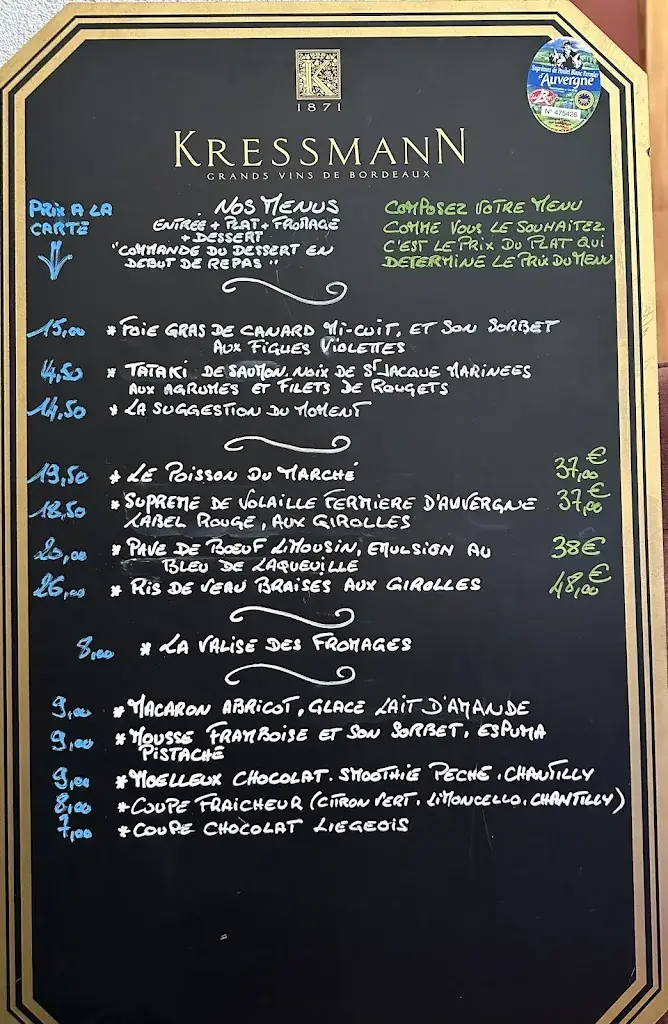 K
1871
KRESSMANN
GRANDS VINS DE BORDEAUX
Suprêmes de Poulet Blanc Fermier
d'Auvergne
N° 475426
PRIX A LA
CARTE
NOS MENUS
ENTREE + PLAT + FROMAGE
+ DESSERT
"COMMANDE DU DESSERT EN
DEBUT DE REPAS"
COMPOSEZ VOTRE MENU
COMME VOUS LE SOUHAITEZ
C'EST LE PRIX DU PLAT QUI
DETERMINE LE PRIX DU MENU
15,00 * FOIE GRAS DE CANARD MI-CUIT, ET SON SORBET
AUX FIGUES VIOLETTES
14,50 * TATAKI DE SAUMON, NOIX DE ST JACQUE MARINEES
AUX AGRUMES ET FILETS DE ROUGETS
14,50 * LA SUGGESTION DU MOMENT
19,50 * LE POISSON DU MARCHÉ 37,00€
18,50 * SUPREME DE VOLAILLE FERMIERE D'AUVERGNE 37,00€
LABEL ROUGE, AUX GIROLLES
20,00 * PAVE DE BOEUF LIMOUSIN, EMULSION AU 38€
BLEU DE LAQUEUILLE
26,00 * RIS DE VEAU BRAISES AUX GIROLLES 48,00€
8,00 * LA VALISE DES FROMAGES
9,00 * MACARON ABRICOT, GLACE LAIT D'AMANDE
9,00 * MOUSSE FRAMBOISE ET SON SORBET, ESPUMA
PISTACHE
9,00 * MOELLEUX CHOCOLAT. SMOOTHIE PECHE. CHANTILLY
8,00 * COUPE FRAICHEUR (CITRON VERT. LIMONCELLO. CHANTILLY)
7,00 * COUPE CHOCOLAT LIEGEOIS